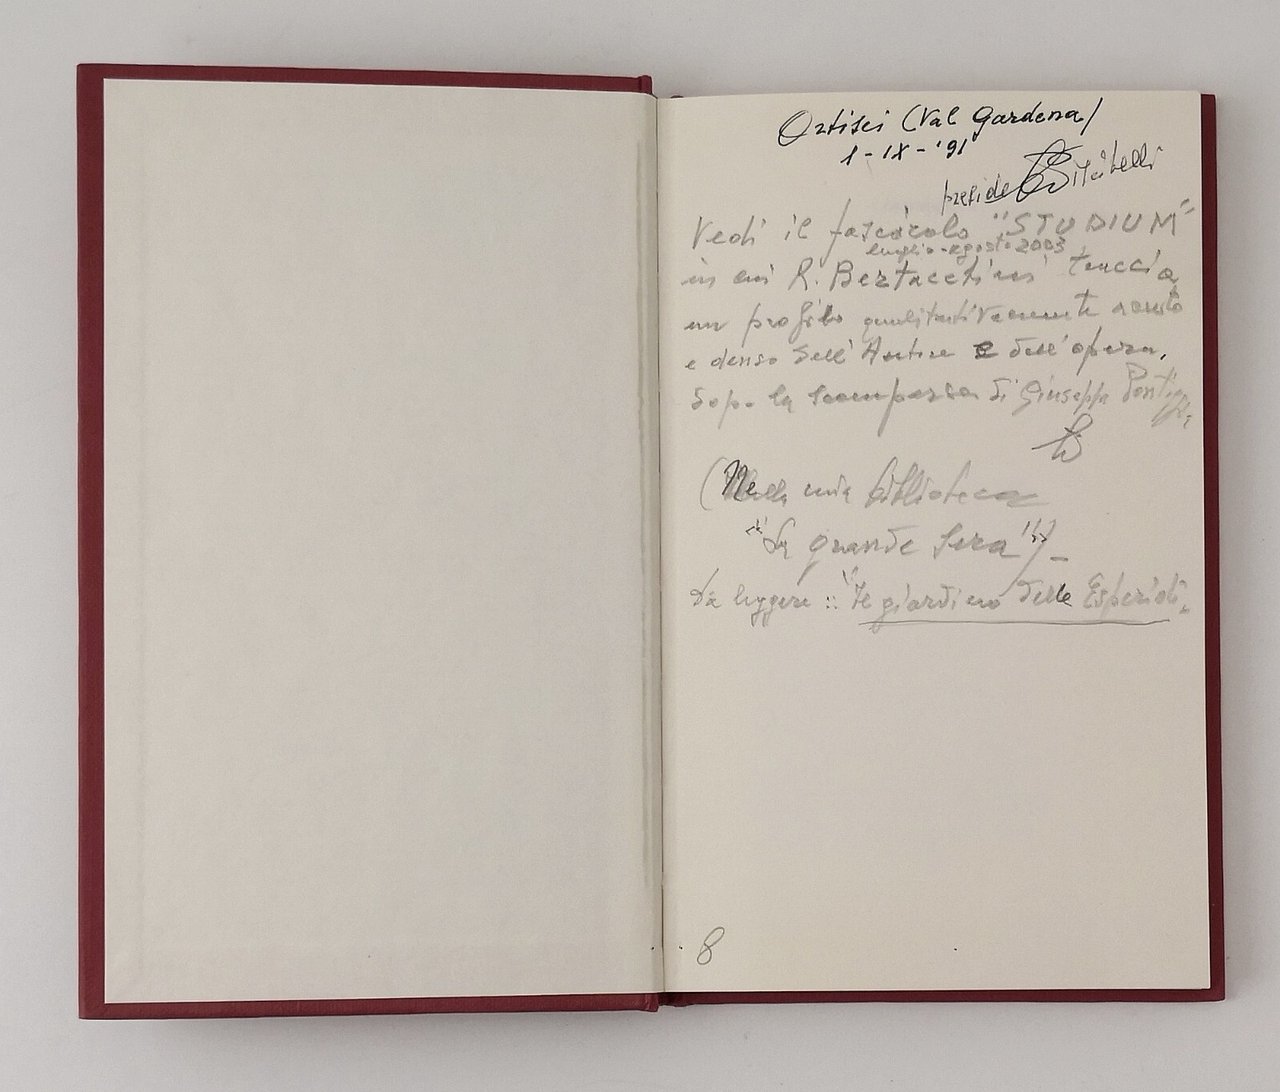 Ortisei (Val Gardena)
1-IX-'91
preside
Vedi il fascicolo "STUDIUM"
luglio-agosto 2003
in cui R. Bertacchini traccia
un profilo qualitativamente acuto
e denso dell'Autore e dell'opera,
dopo la scomparsa di Giuseppe Pontiggia
(Nella mia biblioteca
"La grande sera")-
Da leggere: "Il giardino delle Esperidi
8